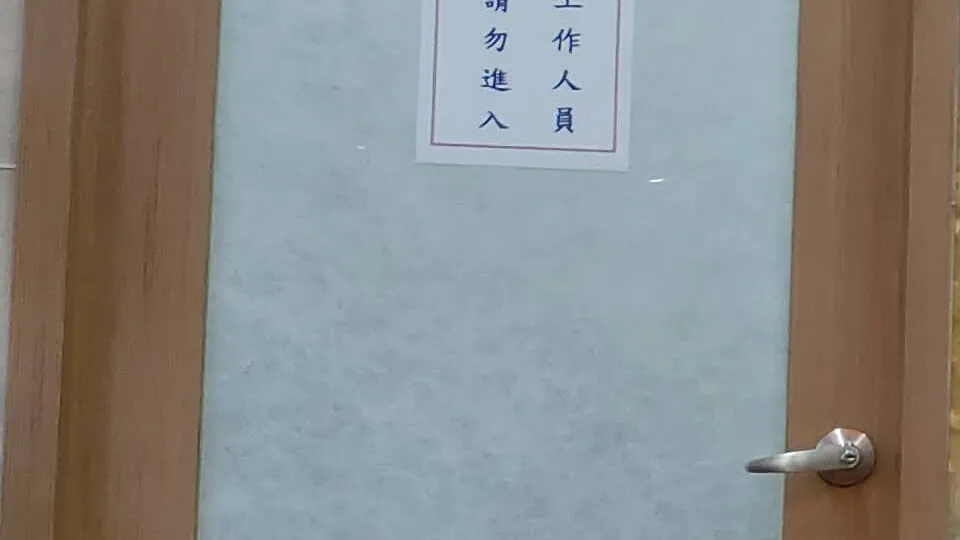 工作人員
請勿進入